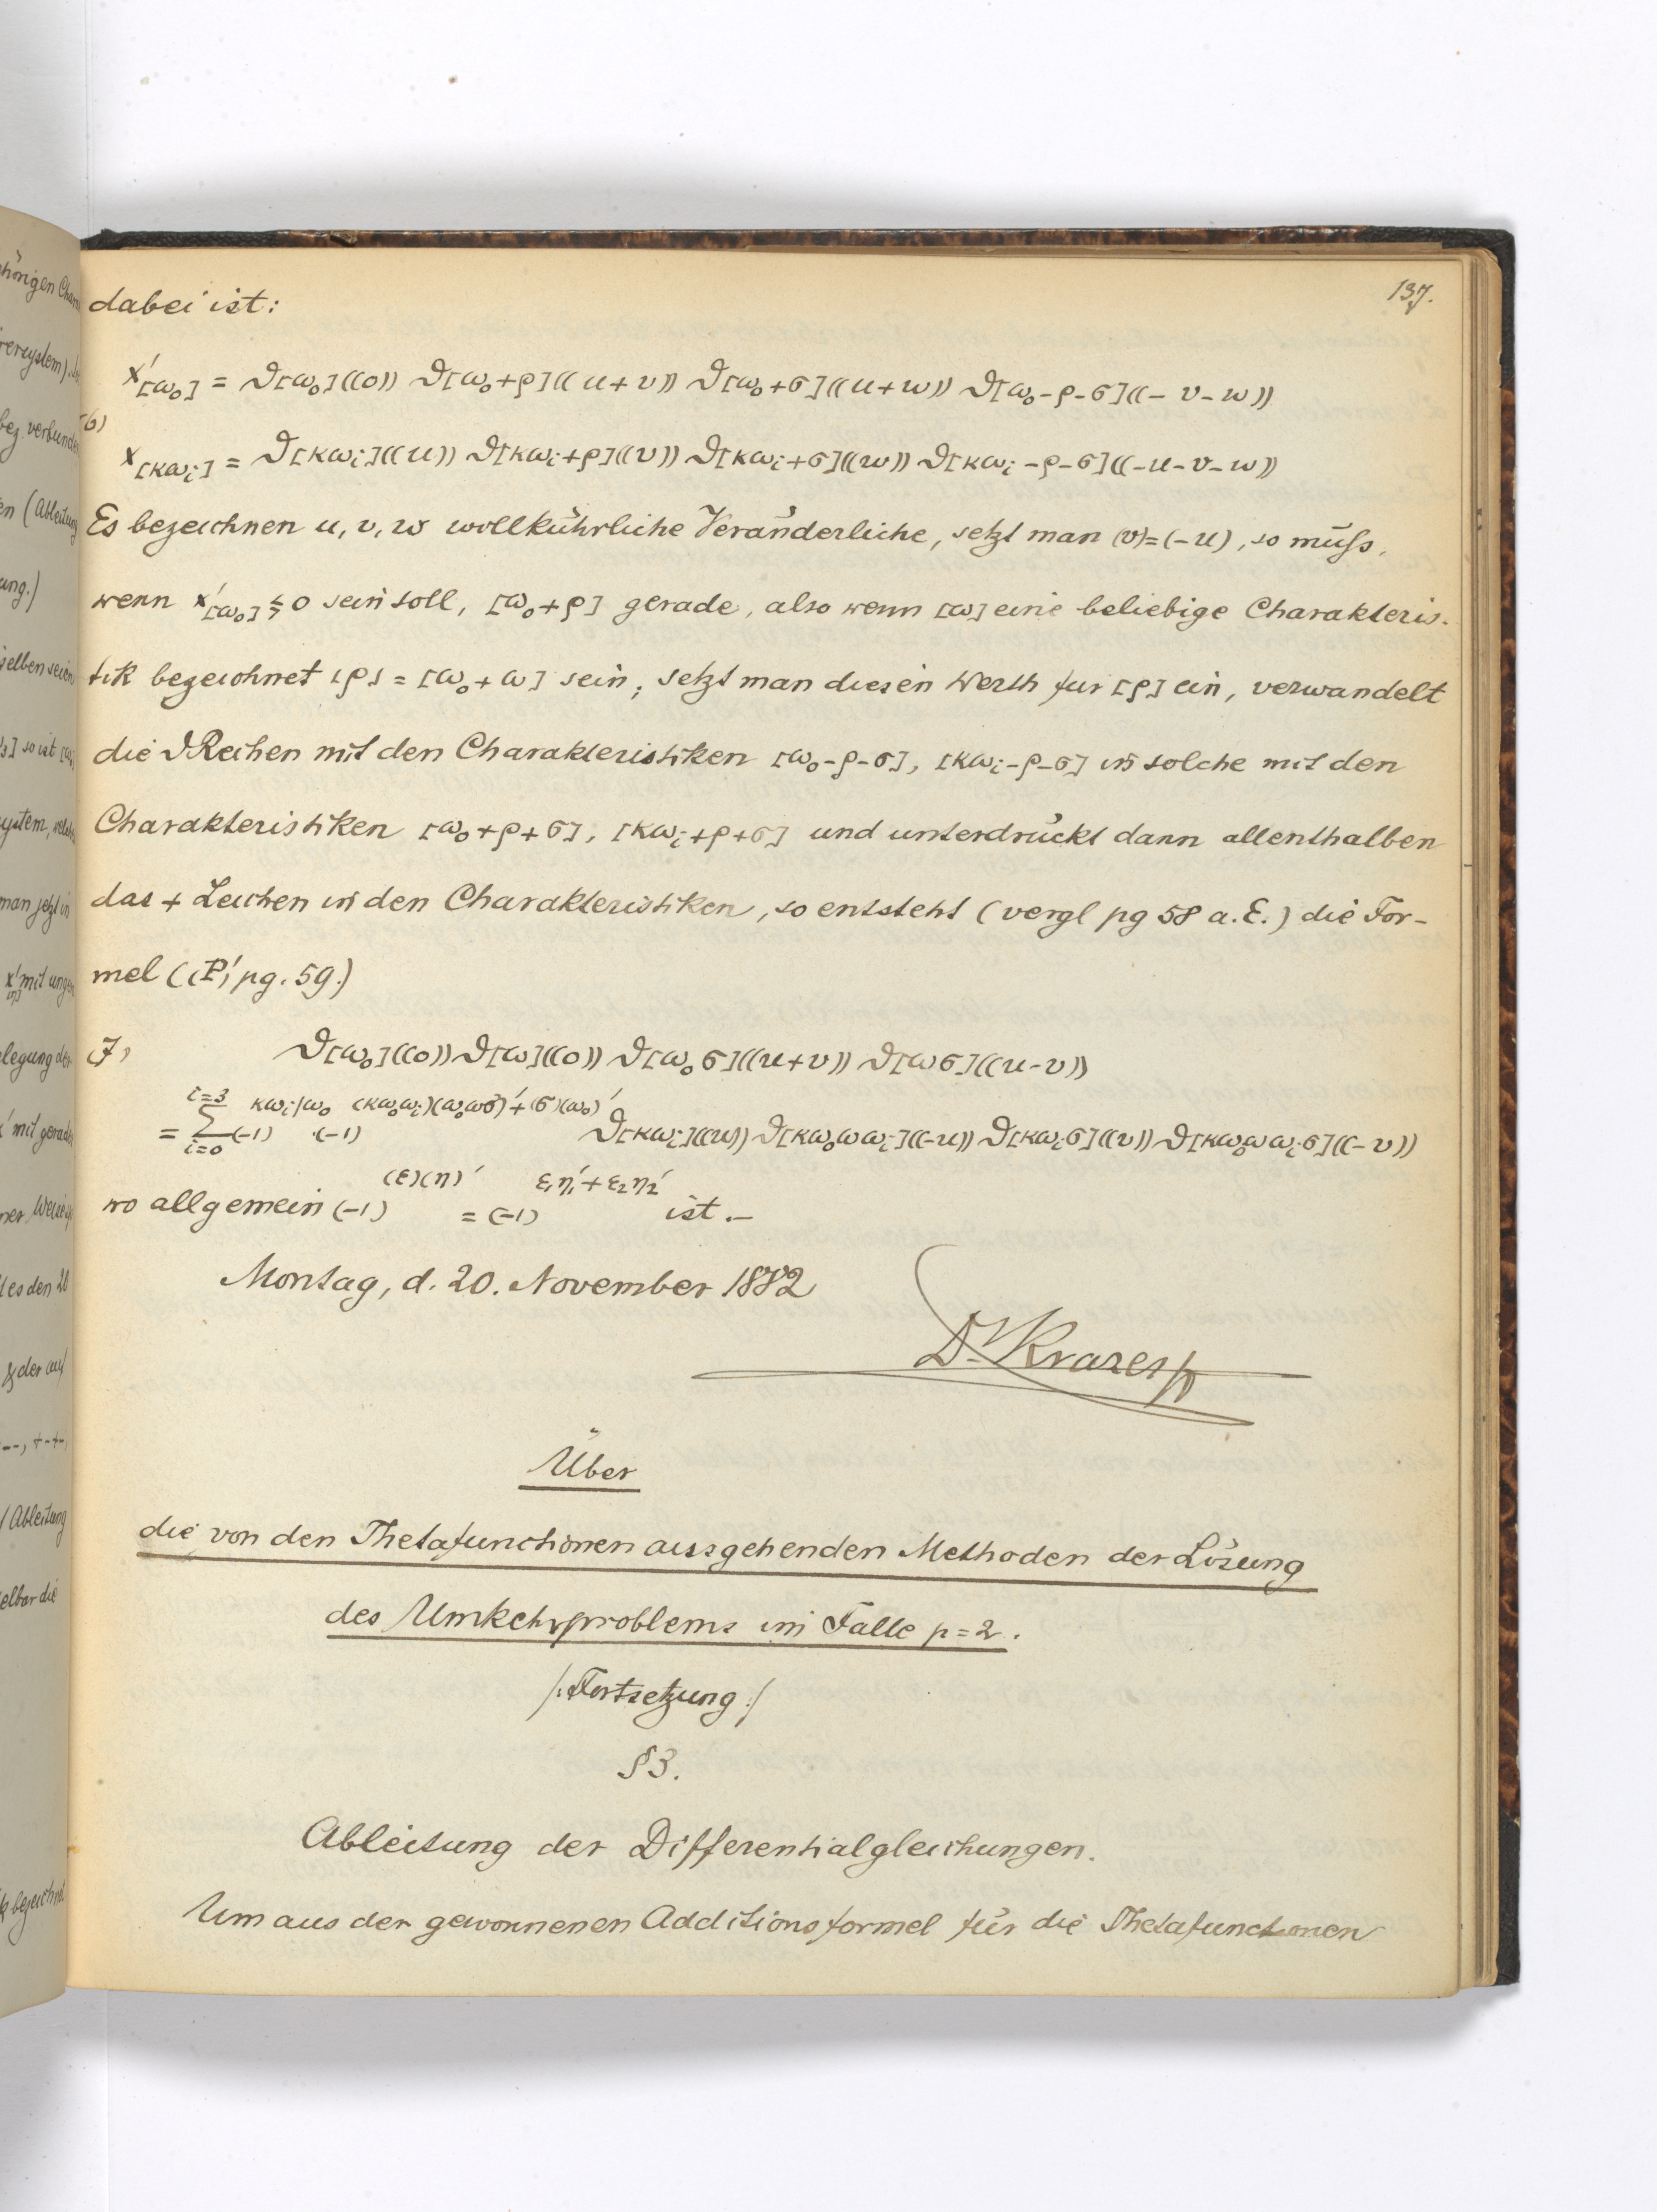 137.
dabei ist:
x'[ω₀] = ϑ[ω₀]((0)) ϑ[ω₀+ρ]((u+v)) ϑ[ω₀+σ]((u+w)) ϑ[ω₀-ρ-σ]((-v-w))
(6)
x[κωᵢ] = ϑ[κωᵢ]((u)) ϑ[κωᵢ+ρ]((v)) ϑ[κωᵢ+σ]((w)) ϑ[κωᵢ-ρ-σ]((-u-v-w))
Es bezeichnen u, v, w willkührliche Veränderliche, setzt man (v)=(-u), so muſs,
wenn x'[ω₀] ≶ 0 sein soll, [ω₀+ρ] gerade, also wenn [ω] eine beliebige Charakteris-
tik bezeichnet [ρ] = [ω₀+ω] sein; setzt man diesen Werth für [ρ] ein, verwandelt
die ϑ Reihen mit den Charakteristiken [ω₀-ρ-σ], [κωᵢ-ρ-σ] in solche mit den
Charakteristiken [ω₀+ρ+σ], [κωᵢ+ρ+σ] und unterdrückt dann allenthalben
das + Zeichen in den Charakteristiken, so entsteht (vergl pg 58 a. E.) die For-
mel ((P)' pg. 59.)
(7) ϑ[ω₀]((0)) ϑ[ω]((0)) ϑ[ω₀σ]((u+v)) ϑ[ωσ]((u-v))
i=3 κωᵢ/ω₀ (κω₀ωᵢ)(ω₀ωσ)'+(σ)(ω₀)'
= Σ (-1) (-1) ϑ[κωᵢ]((u)) ϑ[κω₀ωωᵢ]((-u)) ϑ[κωᵢσ]((v)) ϑ[κω₀ωωᵢσ]((-v))
i=0
(ε)(η)' ε₁η₁'+ε₂η₂'
wo allgemein (-1) = (-1) ist.–
Montag, d. 20. November 1882
Dr Krazer
Über
die von den Thetafunctionen ausgehenden Methoden der Lösung
des Umkehrproblems im Falle p=2.
/:Fortsetzung:/
§3.
Ableitung der Differentialgleichungen.
Um aus der gewonnenen Additionsformel für die Thetafunctionen